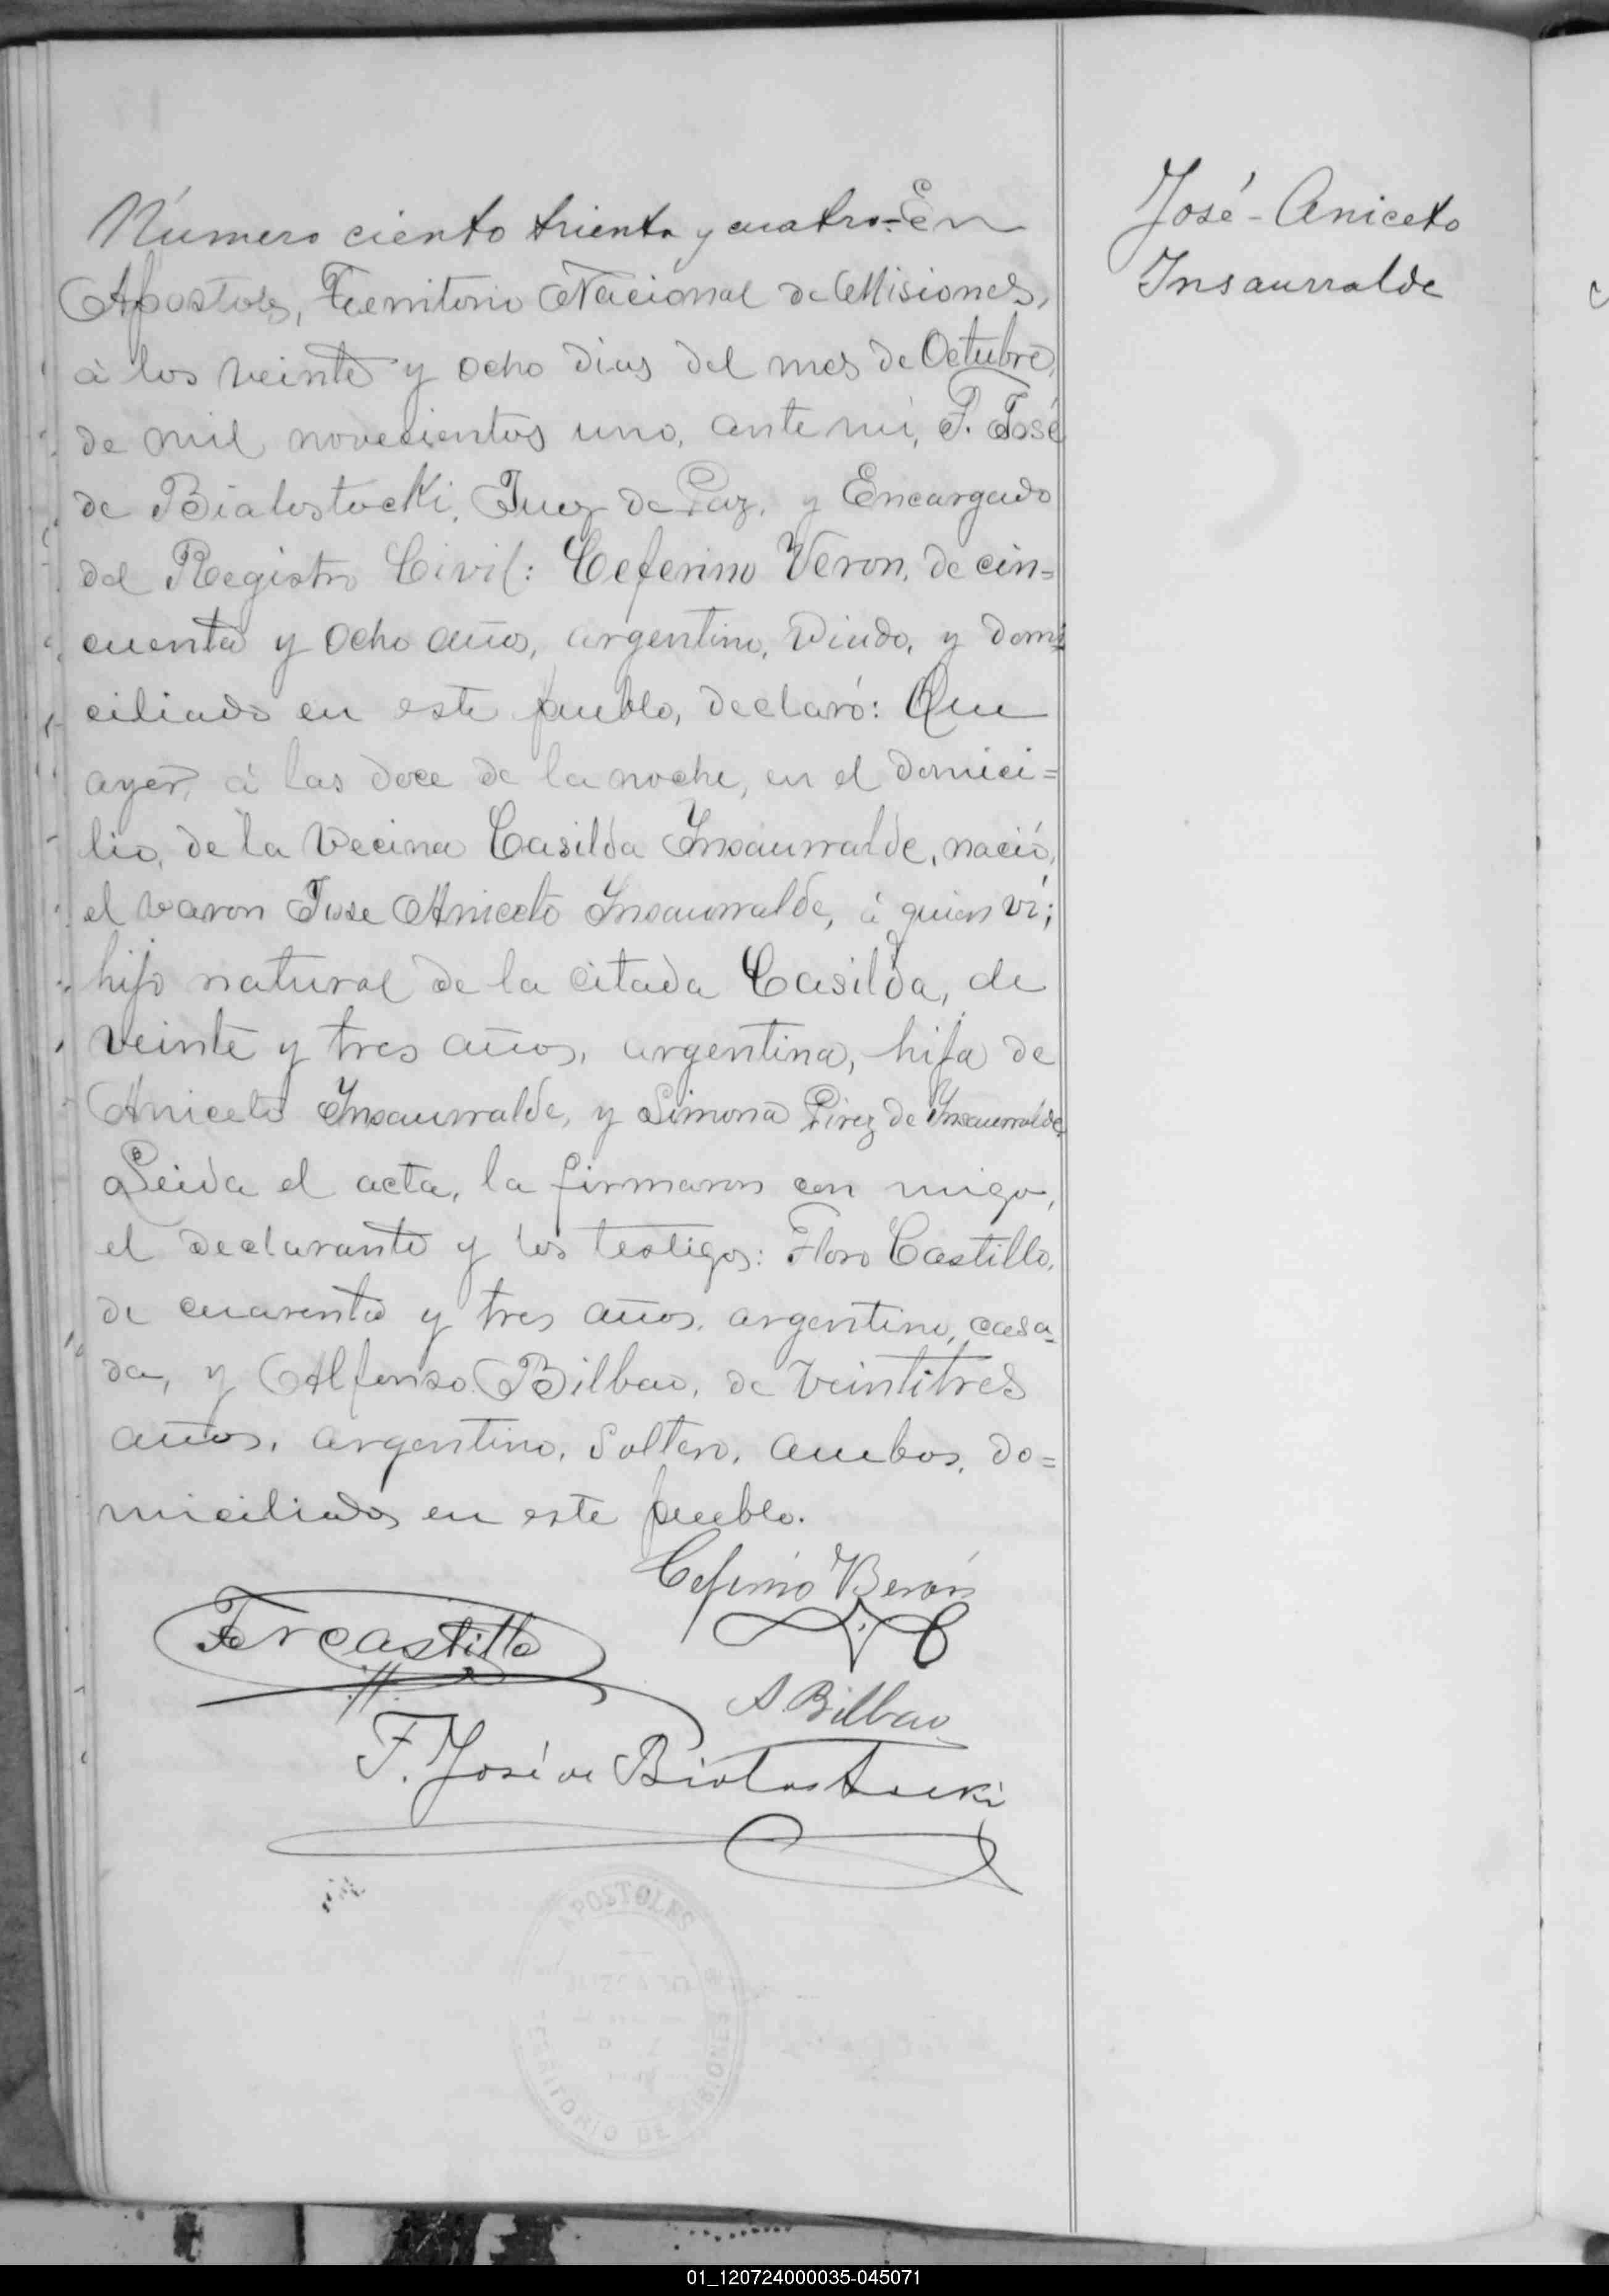 Número ciento treinta y cuatro=En
José-Aniceto
Insaurralde
Apostoles, Territorio Nacional de Misiones,
à los veinte y ocho dias del mes de Octubre,
de mil novecientos uno, ante mi, F. José
de Bialostocki, Juez de Paz, y Encargado
del Registro Civil: Ceferino Veron, de cin=
cuenta y ocho años, argentino, viudo, y domi=
ciliado en este pueblo, declaró: Que
ayer, à las doce de la noche, en el domici=
lio, de la vecina Casilda Insaurralde, nació,
el varon Jose Aniceto Insaurralde, à quien vi;
hijo natural de la citada Casilda, de
veinte y tres años, argentina, hija de
Aniceto Insaurralde, y Simona Pirez de Insaurralde,
Leida el acta, la firmaron con migo,
el declarante y los testigos: Floro Castillo,
de cuarenta y tres años, argentino, casa=
da, y Alfonso Bilbao, de veintitres
años, argentino, soltero, ambos, do=
miciliados en este pueblo.
Cefirino Berón
Castillo
A Bilbao
F. José de Bialostocki
APOSTOLES
TERRITORIO DE MISIONES
01_120724000035-045071